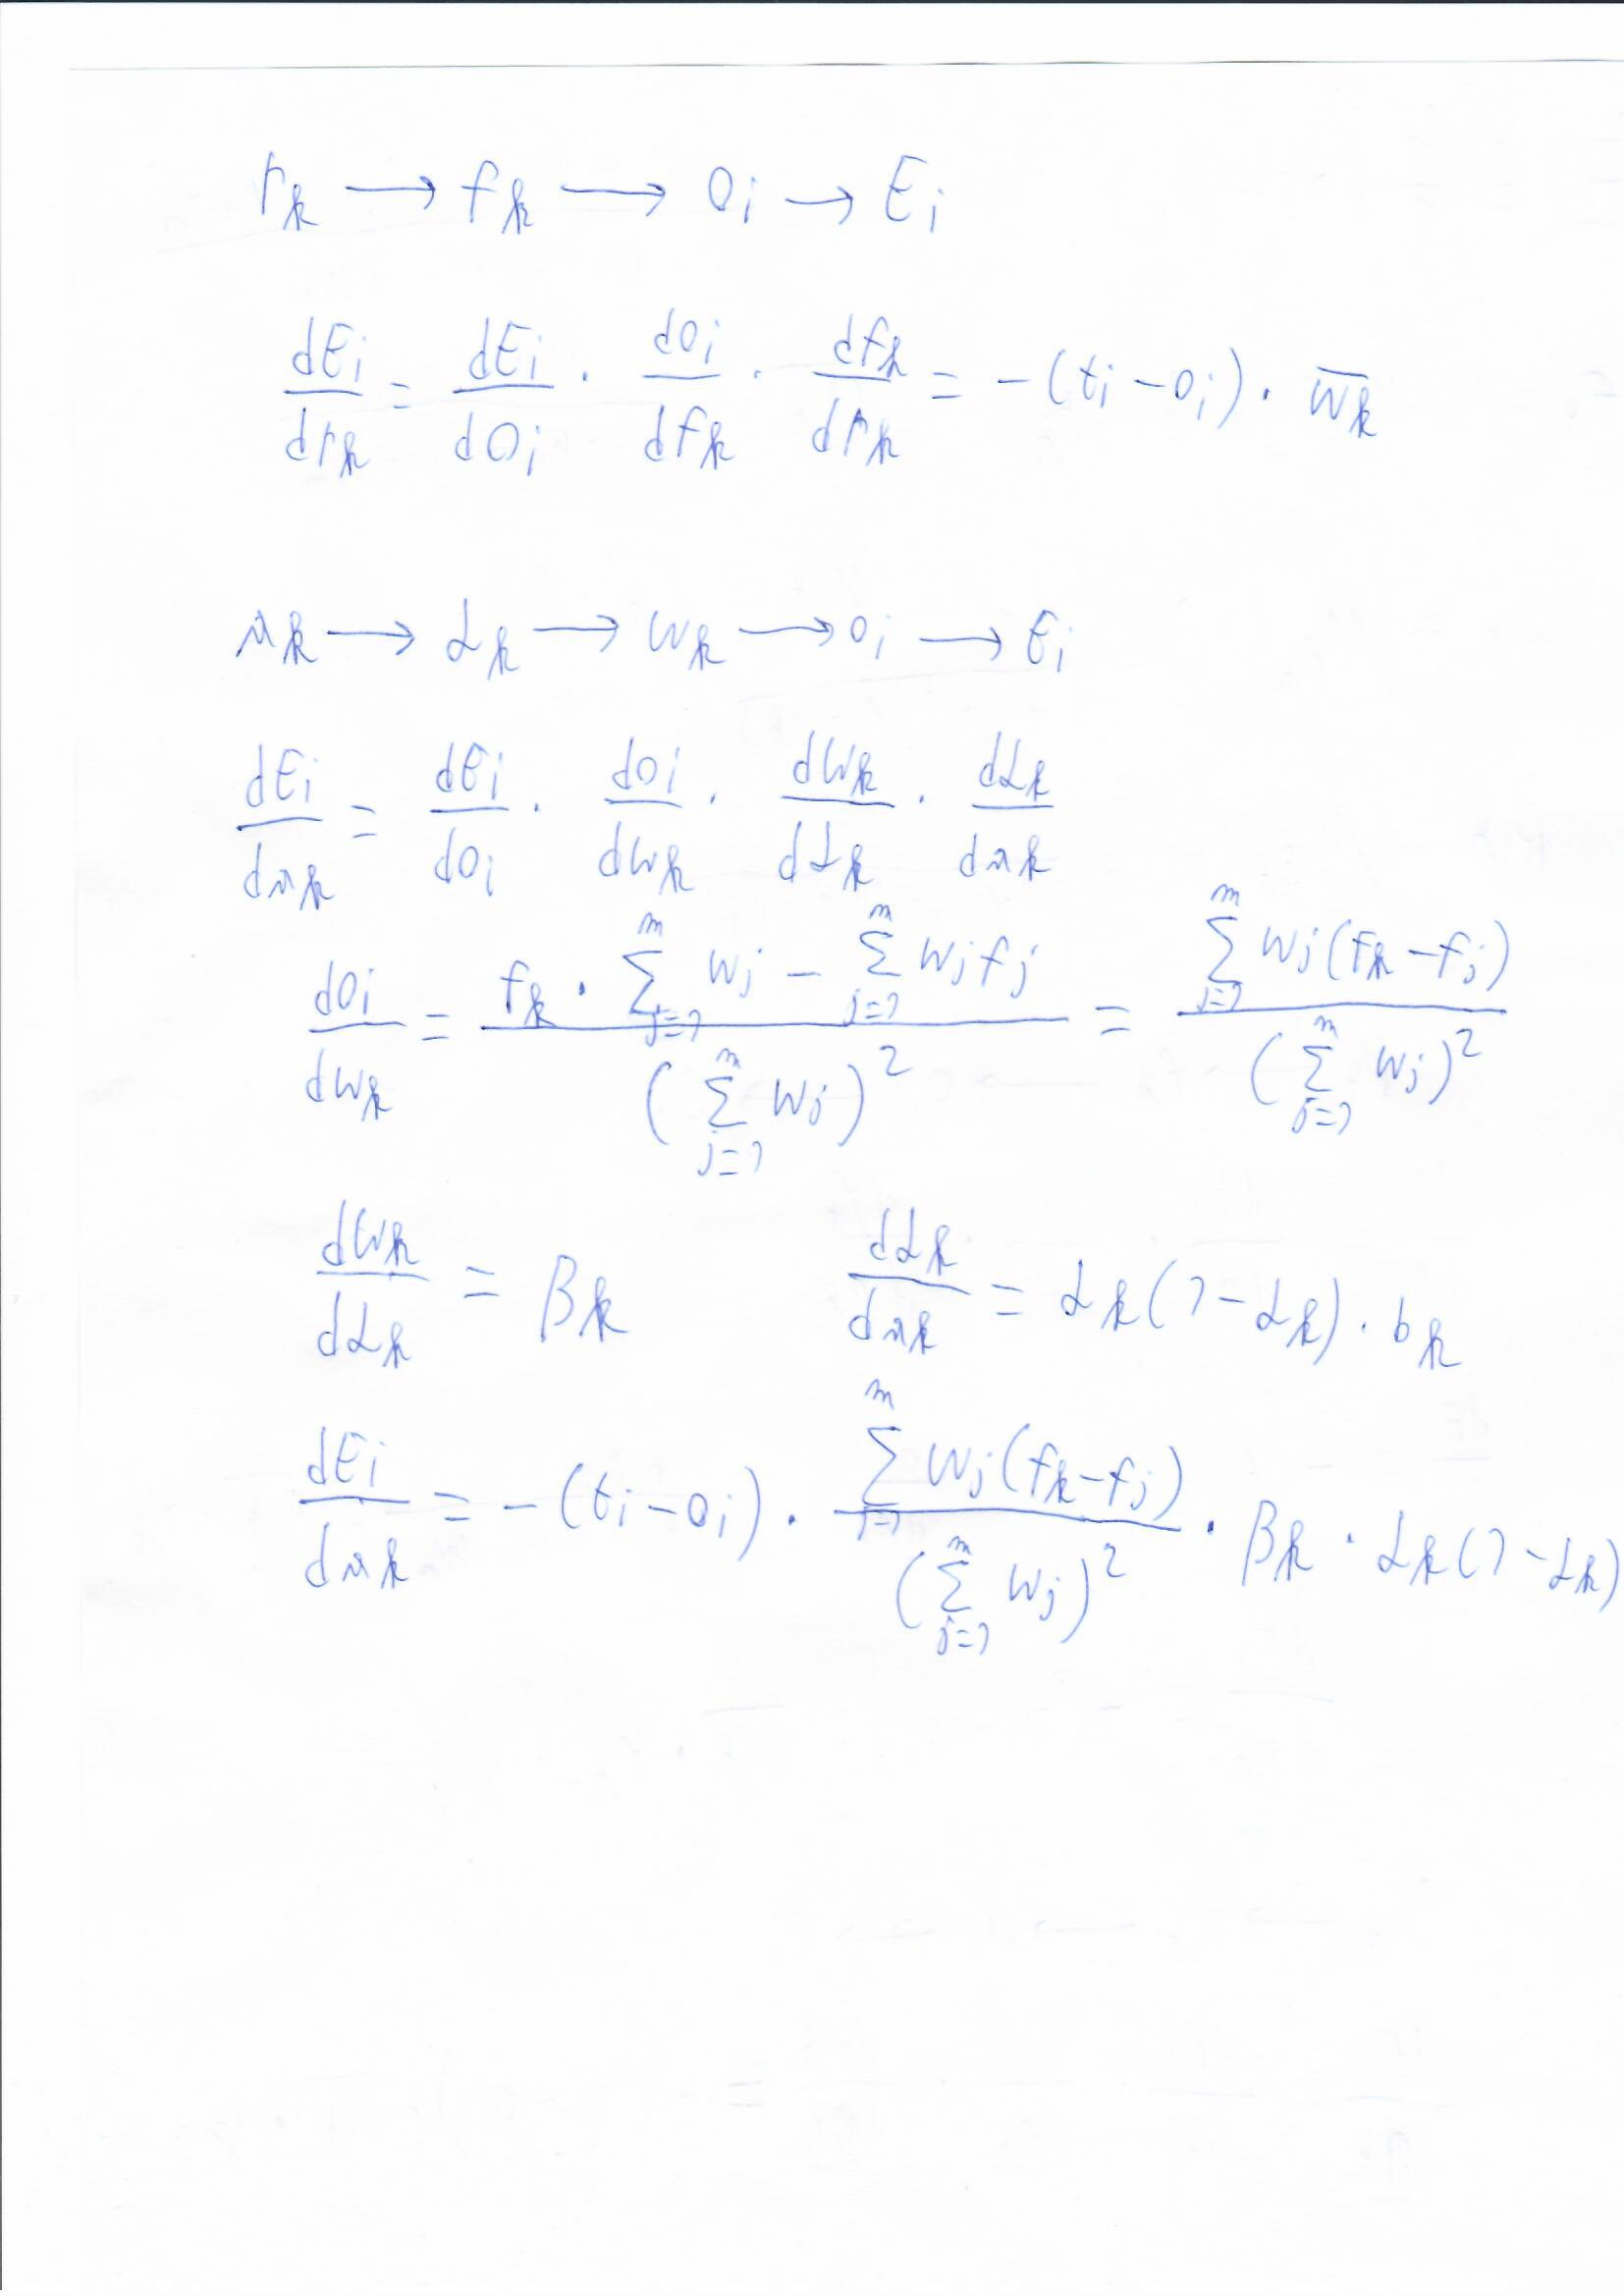 r_k → f_k → o_i → E_i
dE_i/dr_k = dE_i/dO_i · dO_i/df_k · df_k/dr_k = -(t_i - o_i) · w̅_k
a_k → α_k → w_k → o_i → E_i
dE_i/da_k = dE_i/do_i · do_i/dw_k · dw_k/dα_k · dα_k/da_k
do_i/dw_k = (f_k · ∑_{j=1}^{m} w_j - ∑_{j=1}^{m} w_j f_j) / (∑_{j=1}^{m} w_j)^2 = ∑_{j=1}^{m} w_j(f_k - f_j) / (∑_{j=1}^{m} w_j)^2
dw_k/dα_k = β_k    dα_k/da_k = α_k(1 - α_k) · b_k
dE_i/da_k = -(t_i - o_i) · ∑_{j=1}^{m} w_j(f_k - f_j) / (∑_{j=1}^{m} w_j)^2 · β_k · α_k(1 - α_k)